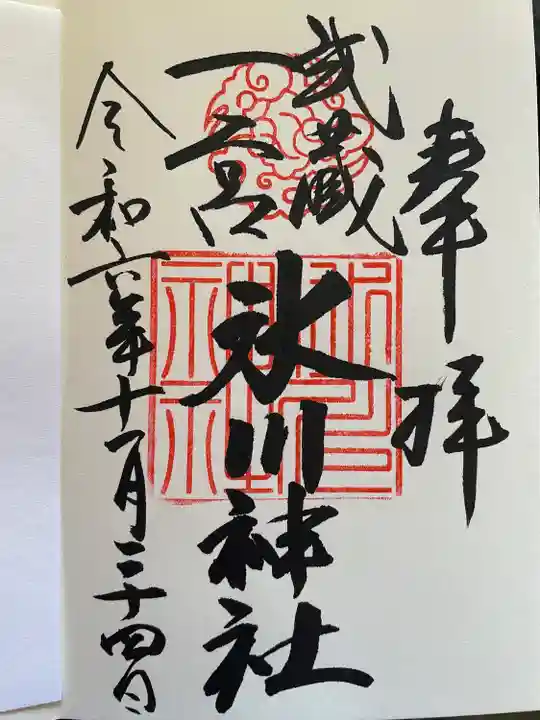 奉拝
武蔵
一宮
氷川神社
令和六年十一月二十四日